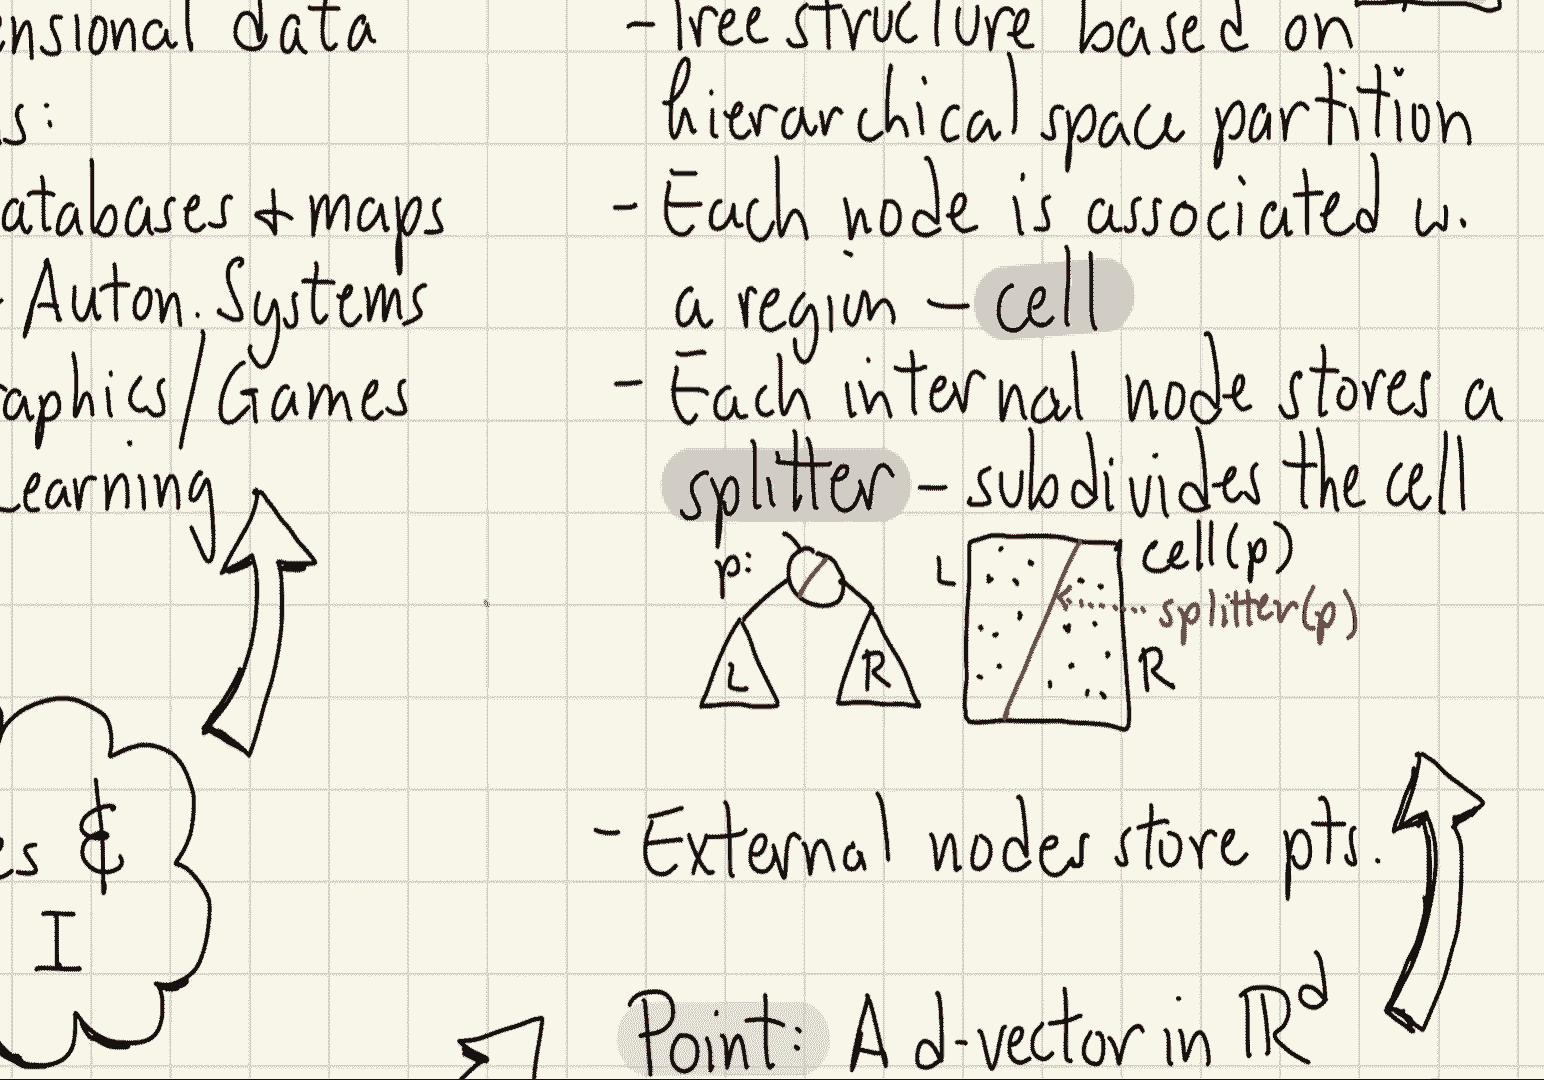 ensional data
s:
atabases & maps
- Auton. Systems
raphics/Games
Learning
es &
I
- Tree structure based on
hierarchical space partition
- Each node is associated w.
a region - cell
- Each internal node stores a
splitter - subdivides the cell
p:
L
R
L
cell(p)
splitter(p)
R
- External nodes store pts.
Point: A d-vector in ℝᵈ